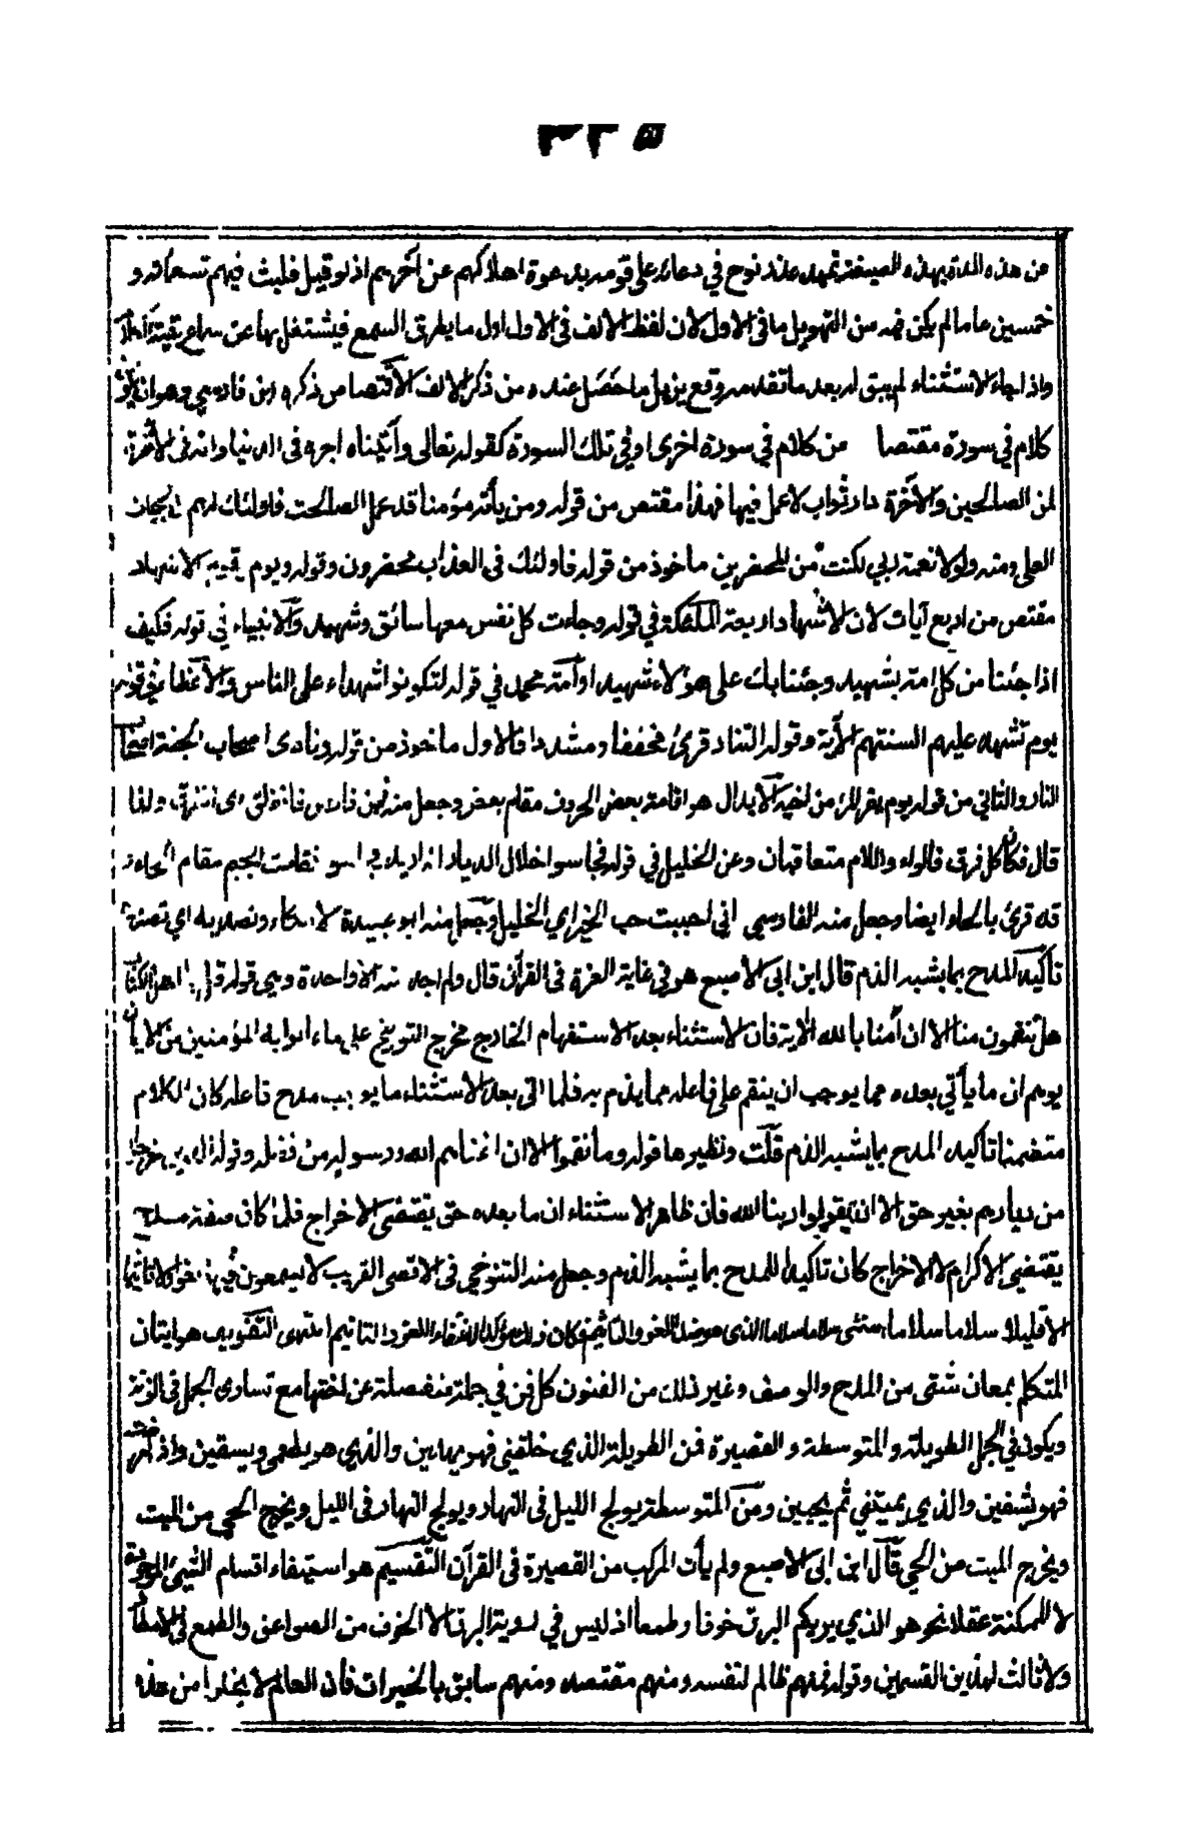 عن هذه المدة بهذه الصيغة تمهيد عذر نوح في دعائه على قومه بدعوة اهلاكهم عن آخرهم اذ لو قيل فلبث فيهم تسعمائة و
خمسين عاما لم يكن فيه من التهويل ما في الاول لان لفظ الالف في الاول اول ما يطرق السمع فيشتغل بها عن سماع بقية
واذا جاء الاستثناء لم يبق له بعد ما تقدمه وقع يزيل ما حصل عنده من ذكر الالف الاقتصاص ذكره ابن فارس وهو ان
كلام في سورة مقتصا من كلام في سورة اخرى او في تلك السورة كقوله تعالى وآتيناه اجره في الدنيا وانه في الآخرة
لمن الصالحين والآخرة دار ثواب لا عمل فيها فهذا مقتص من قوله ومن يأته مؤمنا قد عمل الصالحت فاولئك لهم الدرجات
العلى ومنه ولولا نعمة ربي لكنت من المحضرين ماخوذ من قوله فاولئك في العذاب محضرون وقوله ويوم يقوم الاشهاد
مقتص من اربع آيات لان الاشهاد اربعة الملئكة في قوله وجاءت كل نفس معها سائق وشهيد والانبياء في قوله فكيف
اذا جئنا من كل امة بشهيد وجئنا بك على هؤلاء شهيدا وامة محمد في قوله لتكونوا شهداء على الناس والاعضاء في قوله
يوم تشهد عليهم السنتهم الآية وقوله التناد قرئ مخففا ومشددا فالاول ماخوذ من قوله ونادى اصحاب الجنة اصحاب
النار والثاني من قوله يوم يفر المرء من اخيه الابدال هو اقامة بعض الحروف مقام بعض وجعل منه ابن فارس فانفلق اى انفرق ولذا
قال فكان كل فرق فالراء واللام متعاقبان وعن الخليل في قوله فجاسوا خلال الديار انه اريد فحاسوا فقامت الجيم مقام الحاء و
قد قرئ بالحاء ايضا وجعل منه الفارسي اني احببت حب الخير اي الخيل وجعل منه ابو عبيدة الا مكاء وتصدية اي تصددة
تاكيد المدح بما يشبه الذم قال ابن ابى الاصبع هو في غاية العزة في القرآن قال ولم اجد منه الا آية واحدة وهي قوله قل يا اهل الكتاب
هل تنقمون منا الا ان آمنا بالله الآية فان الاستثناء بعد الاستفهام الخارج مخرج التوبيخ على ما عابوا به المؤمنين من الايمان
يوهم ان ما يأتي بعده مما يوجب ان ينقم على فاعله مما يذم به فلما اتى بعد الاستثناء ما يوجب مدح فاعله كان الكلام
متضمنا تاكيد المدح بما يشبه الذم قلت ونظيرها قوله وما نقموا الا ان اغناهم الله ورسوله من فضله وقوله الذين اخرجوا
من ديارهم بغير حق الا ان يقولوا ربنا الله فان ظاهر الاستثناء ان ما بعده حق يقتضى الاخراج فلما كان صفة مدح
يقتضى الاكرام لا الاخراج كان تاكيدا للمدح بما يشبه الذم وجعل منه التنوخي في الاقصى القريب لا يسمعون فيها لغوا ولا تاثيما
الا قليلا سلاما سلاما استثنى سلاما سلاما الذى هو ضد اللغو والتاثيم فكان ذلك مؤكدا لانتفاء اللغو والتاثيم انتهى التفويف هو اتيان
المتكلم بمعان شتى من المدح والوصف وغير ذلك من الفنون كل فن في جملة منفصلة عن اختها مع تساوى الجمل في الزنة
ويكون في الجمل الطويلة والمتوسطة والقصيرة فمن الطويلة الذي خلقني فهو يهدين والذي هو يطعمنى ويسقين واذا مرضت
فهو يشفين والذي يميتني ثم يحيين ومن المتوسطة يولج الليل في النهار ويولج النهار في الليل ويخرج الحي من الميت
ويخرج الميت من الحي قال ابن ابى الاصبع ولم يأت المركب من القصيرة في القرآن التقسيم هو استيفاء اقسام الشيئ الموجودة
لا الممكنة عقلا نحو هو الذي يريكم البرق خوفا وطمعا اذ ليس في رؤية البرق الا الخوف من الصواعق والطمع في الامطار
ولا ثالث لهذين القسمين وقوله فمنهم ظالم لنفسه ومنهم مقتصد ومنهم سابق بالخيرات فان العالم لا يخلو من هذه